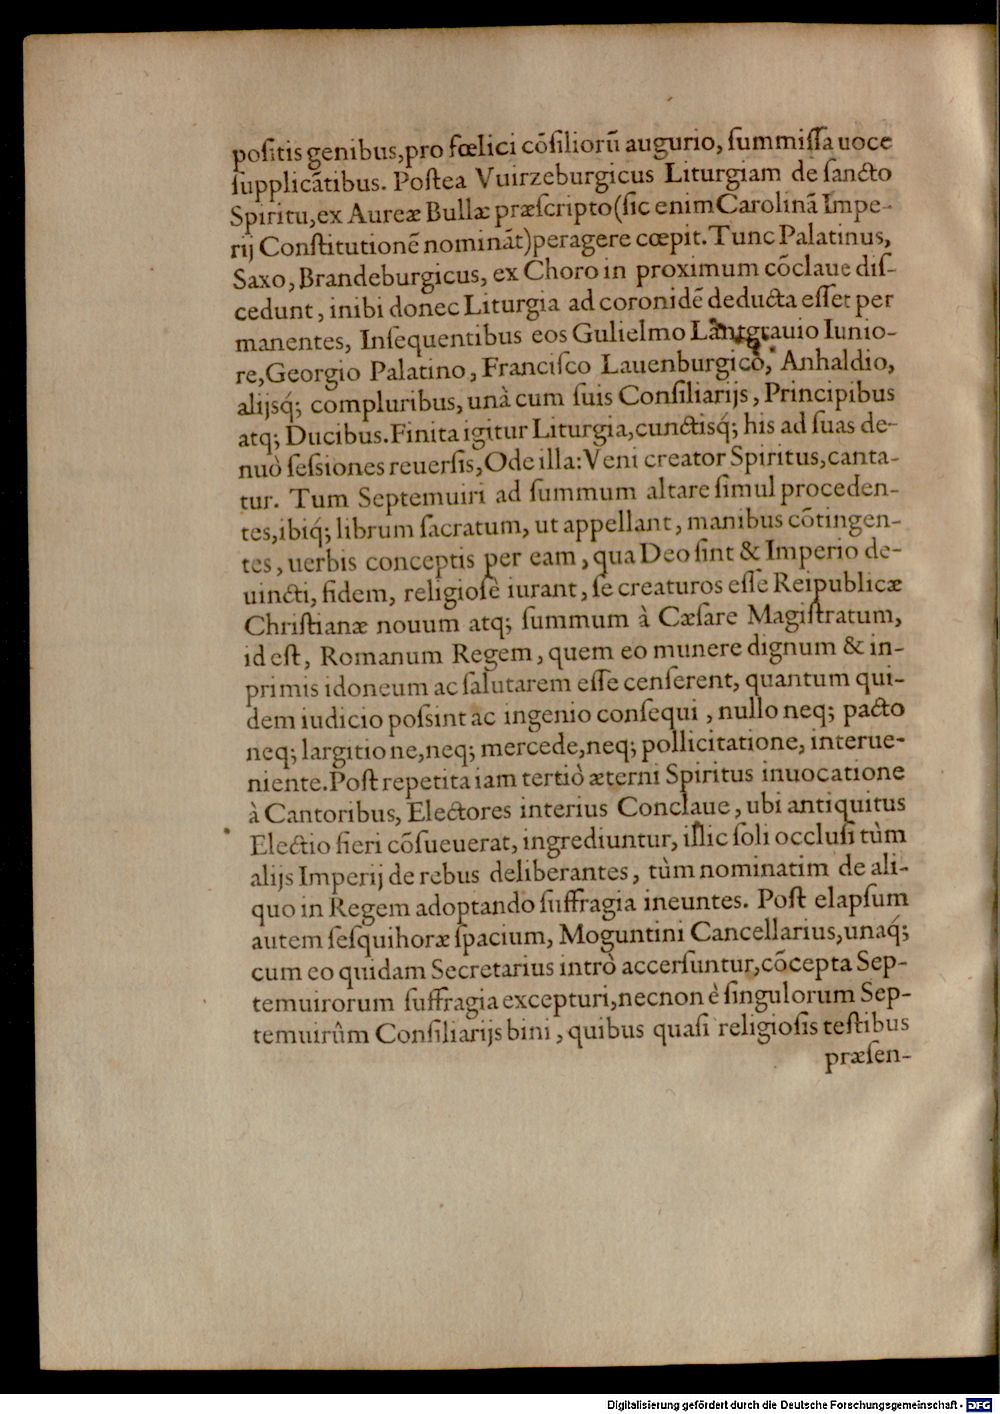 poſitis genibus,pro fœlici cõſiliorũ augurio, ſummiſſa uoce
ſupplicãtibus. Poſtea Vuirzeburgicus Liturgiam de ſancto
Spiritu,ex Aureæ Bullæ præſcripto(ſic enim Carolinã Impe-
rij Conſtitutionẽ nominãt)peragere cœpit.Tunc Palatinus,
Saxo, Brandeburgicus, ex Choro in proximum cõclaue diſ-
cedunt, inibi donec Liturgia ad coronidẽ deducta eſſet per
manentes, Inſequentibus eos Gulielmo Lantgrauio Iunio-
re,Georgio Palatino, Franciſco Lauenburgico, Anhaldio,
alijsq́; compluribus, unà cum ſuis Conſiliarijs, Principibus
atq; Ducibus.Finita igitur Liturgia,cunctisq́; his ad ſuas de-
nuò ſeſsiones reuerſis,Ode illa:Veni creator Spiritus,canta-
tur. Tum Septemuiri ad ſummum altare ſimul proceden-
tes,ibiq́; librum ſacratum, ut appellant, manibus cõtingen-
tes, uerbis conceptis per eam, qua Deo ſint & Imperio de-
uincti, fidem, religioſè iurant, ſe creaturos eſſe Reipublicæ
Chriſtianæ nouum atq; ſummum à Cæſare Magiſtratum,
id eſt, Romanum Regem, quem eo munere dignum & in-
primis idoneum ac ſalutarem eſſe cenſerent, quantum qui-
dem iudicio poſsint ac ingenio conſequi, nullo neq; pacto
neq; largitione,neq; mercede,neq; pollicitatione, interue-
niente.Poſt repetita iam tertiò æterni Spiritus inuocatione
à Cantoribus, Electores interius Conclaue, ubi antiquitus
Electio fieri cõſueuerat, ingrediuntur, illic ſoli occluſi tùm
alijs Imperij de rebus deliberantes, tùm nominatim de ali-
quo in Regem adoptando ſuffragia ineuntes. Poſt elapſum
autem ſeſquihoræ ſpacium, Moguntini Cancellarius,unaq́;
cum eo quidam Secretarius intrò accerſuntur,cõcepta Sep-
temuirorum ſuffragia excepturi,necnon è ſingulorum Sep-
temuirûm Conſiliarijs bini, quibus quaſi religioſis teſtibus
præſen-
Digitalisierung gefördert durch die Deutsche Forschungsgemeinschaft - DFG